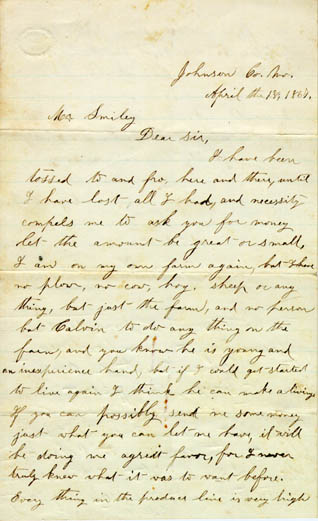 Johnson Co. Mo.
April the 13, 1867.
Mr Smiley
Dear Sir,
I have been
tossed to and fro, here and there, until
I have lost all I had, and necessity
compels me to ask you for money
let the amount be great or small,
I am on my own farm again, but I have
no plow, no cow, hog, sheep or any
thing, but just the farm, and no person
but Calvin to do any thing on the
farm, and you know he is young and
an inexperience hand, but if I could get started
to live again I think he can make a living
If you can possibly send me some money
just what you can let me have, it will
be doing me a great favor, for I never
truly knew what it was to want before.
Every thing in the produce line is very high